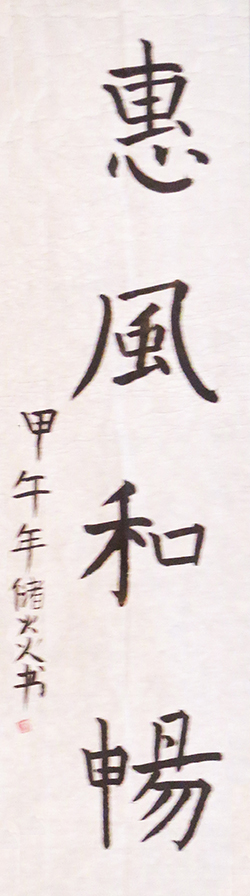 惠風和暢
甲午年储炎书